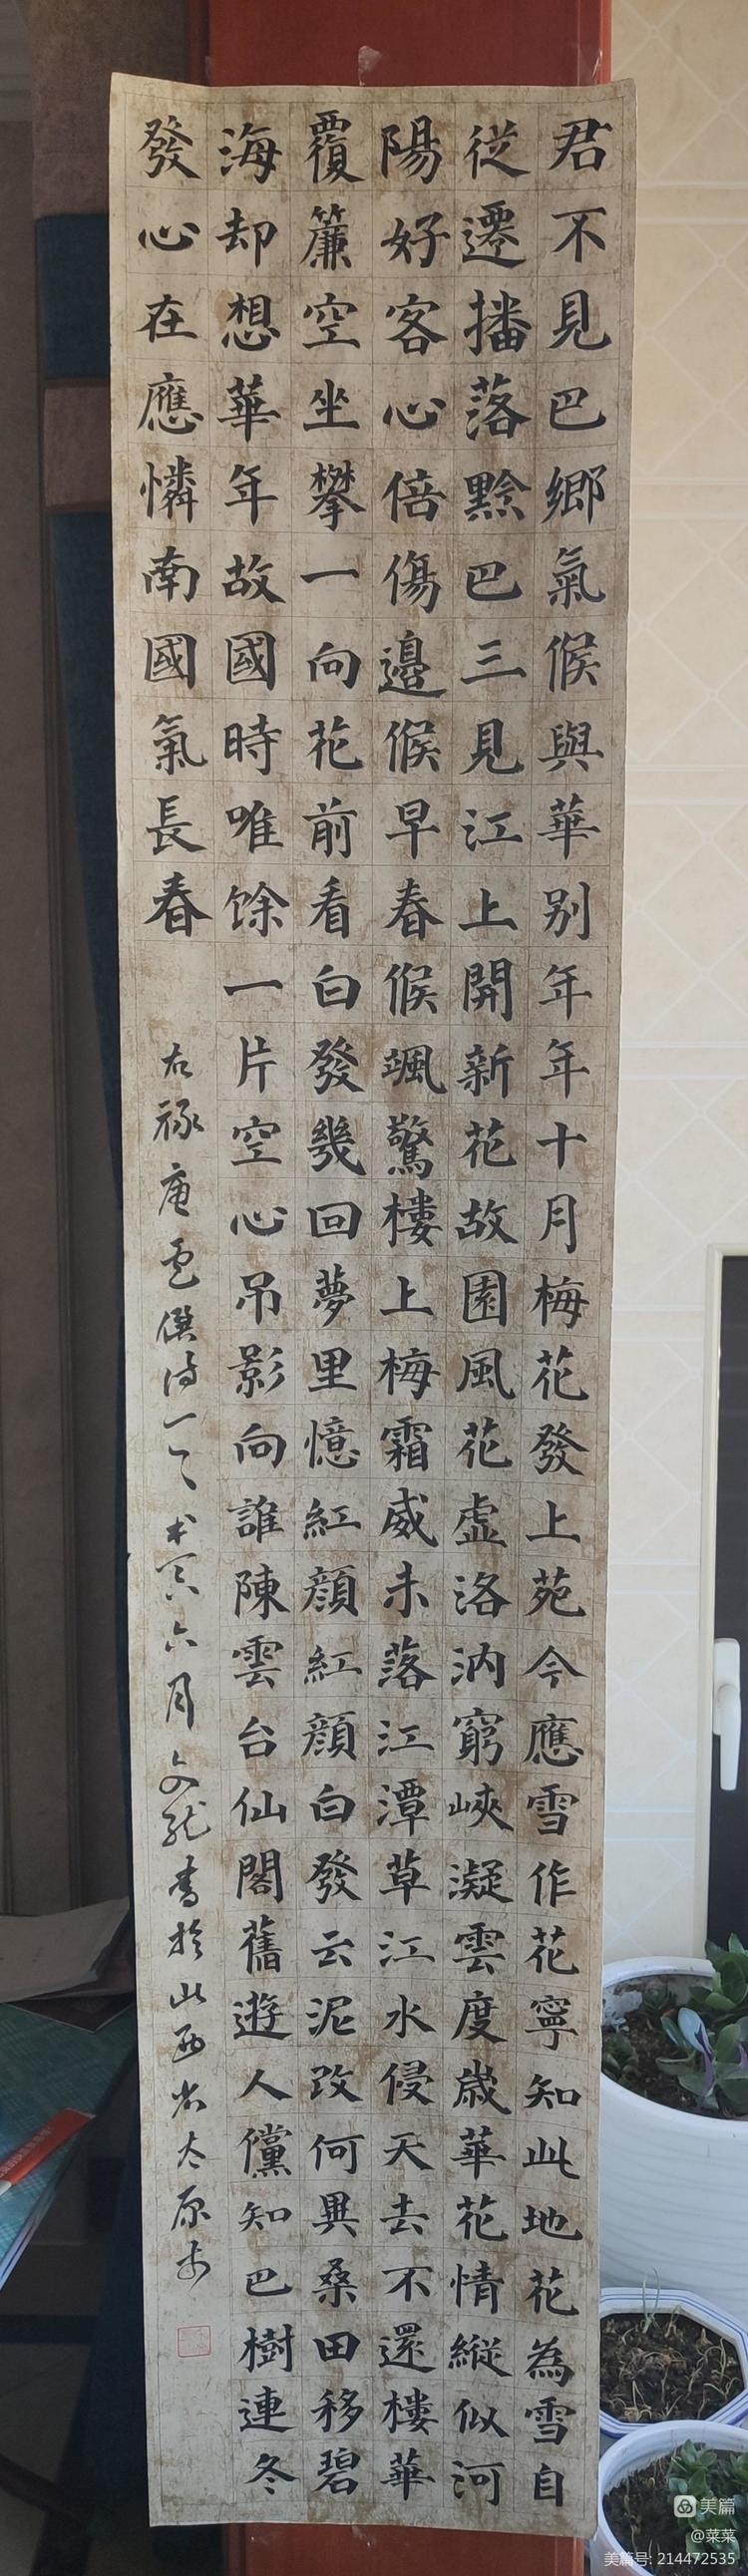 君不見巴鄉氣候與華别年年十月梅花發上苑今應雪作花寧知此地花為雪自
從遷播落黔巴三見江上開新花故園風花虛洛汭窮峽凝雲度歲華花情縱似河
陽好客心倍傷邊候早春候颯驚樓上梅霜威未落江潭草江水侵天去不還樓華
覆簾空坐攀一向花前看白發幾回夢里憶紅顔紅顔白發云泥改何異桑田移碧
海却想華年故國時唯馀一片空心吊影向誰陳雲台仙閣舊遊人儻知巴樹連冬
發心在應憐南國氣長春
六月文龍書於山西省太原市
美篇
@菜菜
美篇号: 214472535